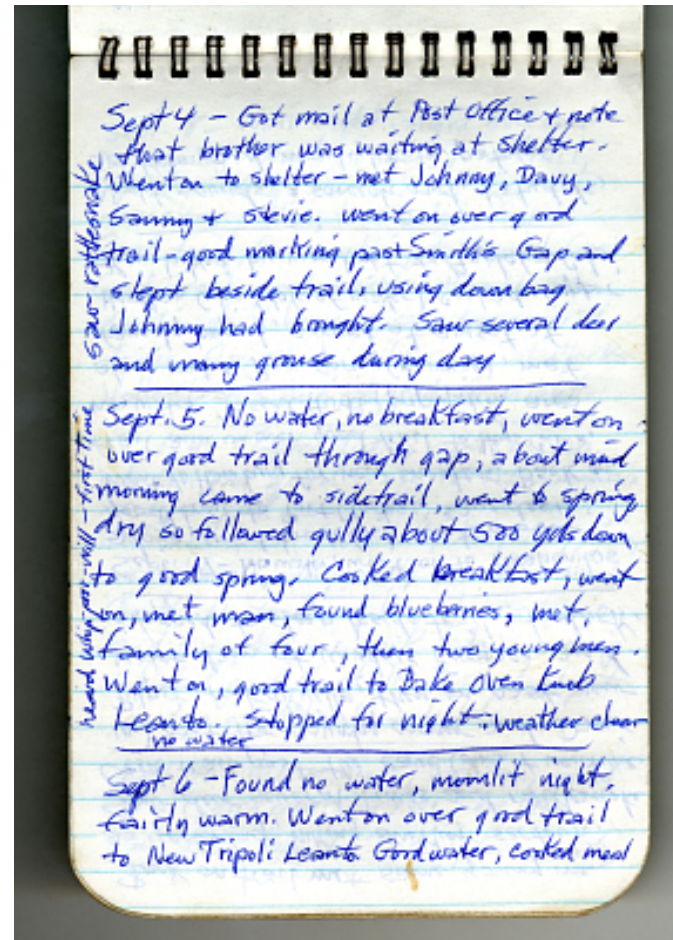 Sept 4 - Got mail at Post Office & note
that brother was waiting at shelter.
Went on to shelter - met Johnny, Davy,
Sammy & Stevie. went on over good
trail - good marking past Smith's Gap and
slept beside trail, using down bag
Johnny had brought. Saw several deer
and many grouse during day
saw rattlesnake
Sept. 5. No water, no breakfast, went on
over good trail through gap, about mid
morning came to sidetrail, went to spring
dry so followed gully about 500 yds down
to good spring. Cooked breakfast, went
on, met man, found blueberries, met,
family of four, then two young men.
Went on, good trail to Bake Oven Knob
Leanto. Stopped for night. weather clear
no water
heard whip-poor-will - first time
Sept 6 - Found no water, moonlit night,
fairly warm. Went on over good trail
to New Tripoli Leanto. Good water, cooked meal